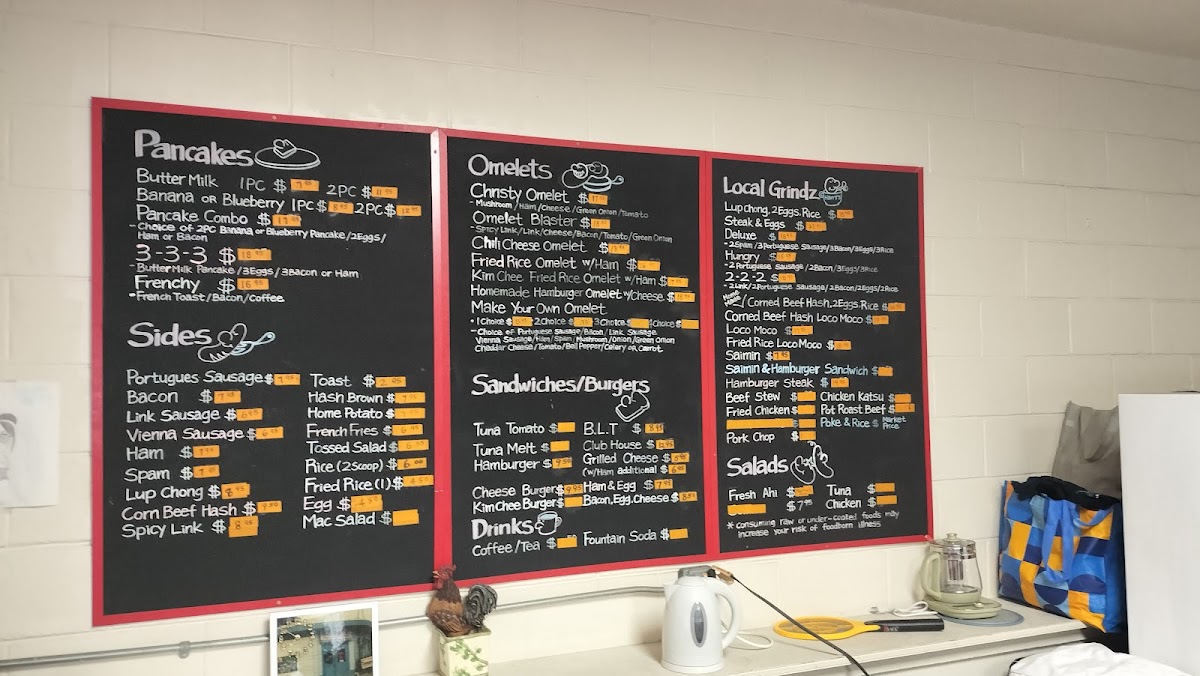 Pancakes
Butter Milk 1PC $ 7.95 2PC $ 11.95
Banana or Blueberry 1PC $ 8.95 2PC $ 12.95
Pancake Combo $
- Choice of 2PC Banana or Blueberry Pancake/2Eggs/
Ham or Bacon
3-3-3 $ 18.95
- Butter Milk Pancake/3Eggs/3Bacon or Ham
Frenchy $ 16.95
* French Toast/Bacon/Coffee
Sides
Portugues Sausage $ 7.95
Bacon $ 7.95
Link Sausage $ 6.95
Vienna Sausage $ 6.95
Ham $ 7.95
Spam $ 7.95
Lup Chong $ 8.95
Corn Beef Hash $ 9.50
Spicy Link $ 8.95
Toast $ 2.95
Hash Brown $
Home Potato $
French Fries $ 6.95
Tossed Salad $
Rice (2 Scoop) $ 6.00
Fried Rice (1) $ 4.50
Egg $ 4.50
Mac Salad $
Omelets
Christy Omelet $
- Mushroom/Ham/Cheese/Green Onion/Tomato
Omelet Blaster $
- Spicy Link/Link/Cheese/Bacon/Tomato/Green Onion
Chili Cheese Omelet $
Fried Rice Omelet w/Ham $
Kim Chee Fried Rice Omelet w/Ham $
Homemade Hamburger Omelet w/Cheese $
Make Your Own Omelet
* 1 Choice $ 2 Choice $ 3 Choice $ 4 Choice $
- Choice of Portuguese Sausage/Bacon/Link Sausage
Vienna Sausage/Ham/Spam/Mushroom/Onion/Green Onion
Cheddar Cheese/Tomato/Bell Pepper/Celery or Carrot
Sandwiches/Burgers
Tuna Tomato $
Tuna Melt $
Hamburger $ 9.50
Cheese Burger $
Kim Chee Burger $
B.L.T $ 8.95
Club House $ 12.95
Grilled Cheese $ 5.95
(w/Ham additional $ 6.95
Ham & Egg $ 7.95
Bacon, Egg, Cheese $ 8.50
Drinks
Coffee/Tea $ Fountain Soda $
Local Grindz
Lup chong, 2Eggs, Rice $
Steak & Eggs $
Deluxe $
- 2Spam/3Portuguese Sausage/3Bacon/3Eggs/3Rice
Hungry $
- 2 Portuguese Sausage/2Bacon/3Eggs/3Rice
2-2-2 $
- 2 Link/2 Portuguese Sausage/2Bacon/2Eggs/2Rice
Home Made/Corned Beef Hash, 2Eggs, Rice $
Corned Beef Hash Loco Moco $
Loco Moco $
Fried Rice Loco Moco $
Saimin $ 7.95
Saimin & Hamburger Sandwich $
Hamburger Steak $
Beef Stew $
Fried Chicken $
$
Pork Chop $
Chicken Katsu $
Pot Roast Beef $
Poke & Rice $ Market Price
Salads
Fresh Ahi $
$ 7.95
Tuna $
Chicken $
* consuming raw or under-coated foods may
increase your risk of foodborn illness